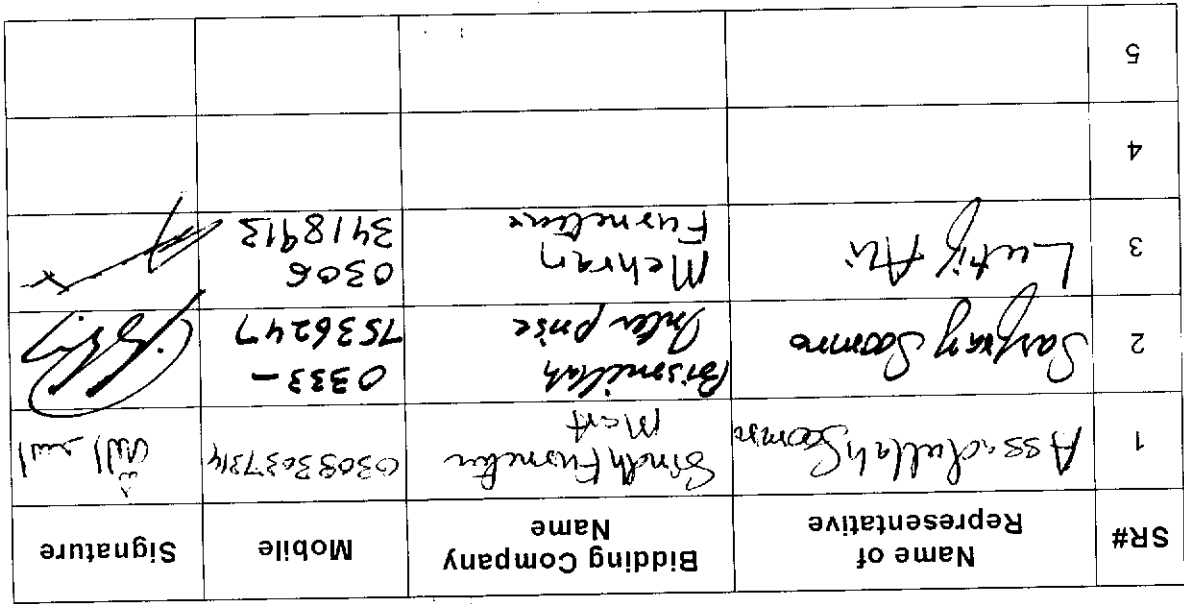 SR# Name of Representative Bidding Company Name Mobile Signature
1 Assadullah Soomro Sindh Furneture Mart اسد اللہ
2 Sarfraz Soomro Bismillah Inter prise 0333-7536247
3 Lutif Ali Mehran Furneture 0306 3418913
4
5